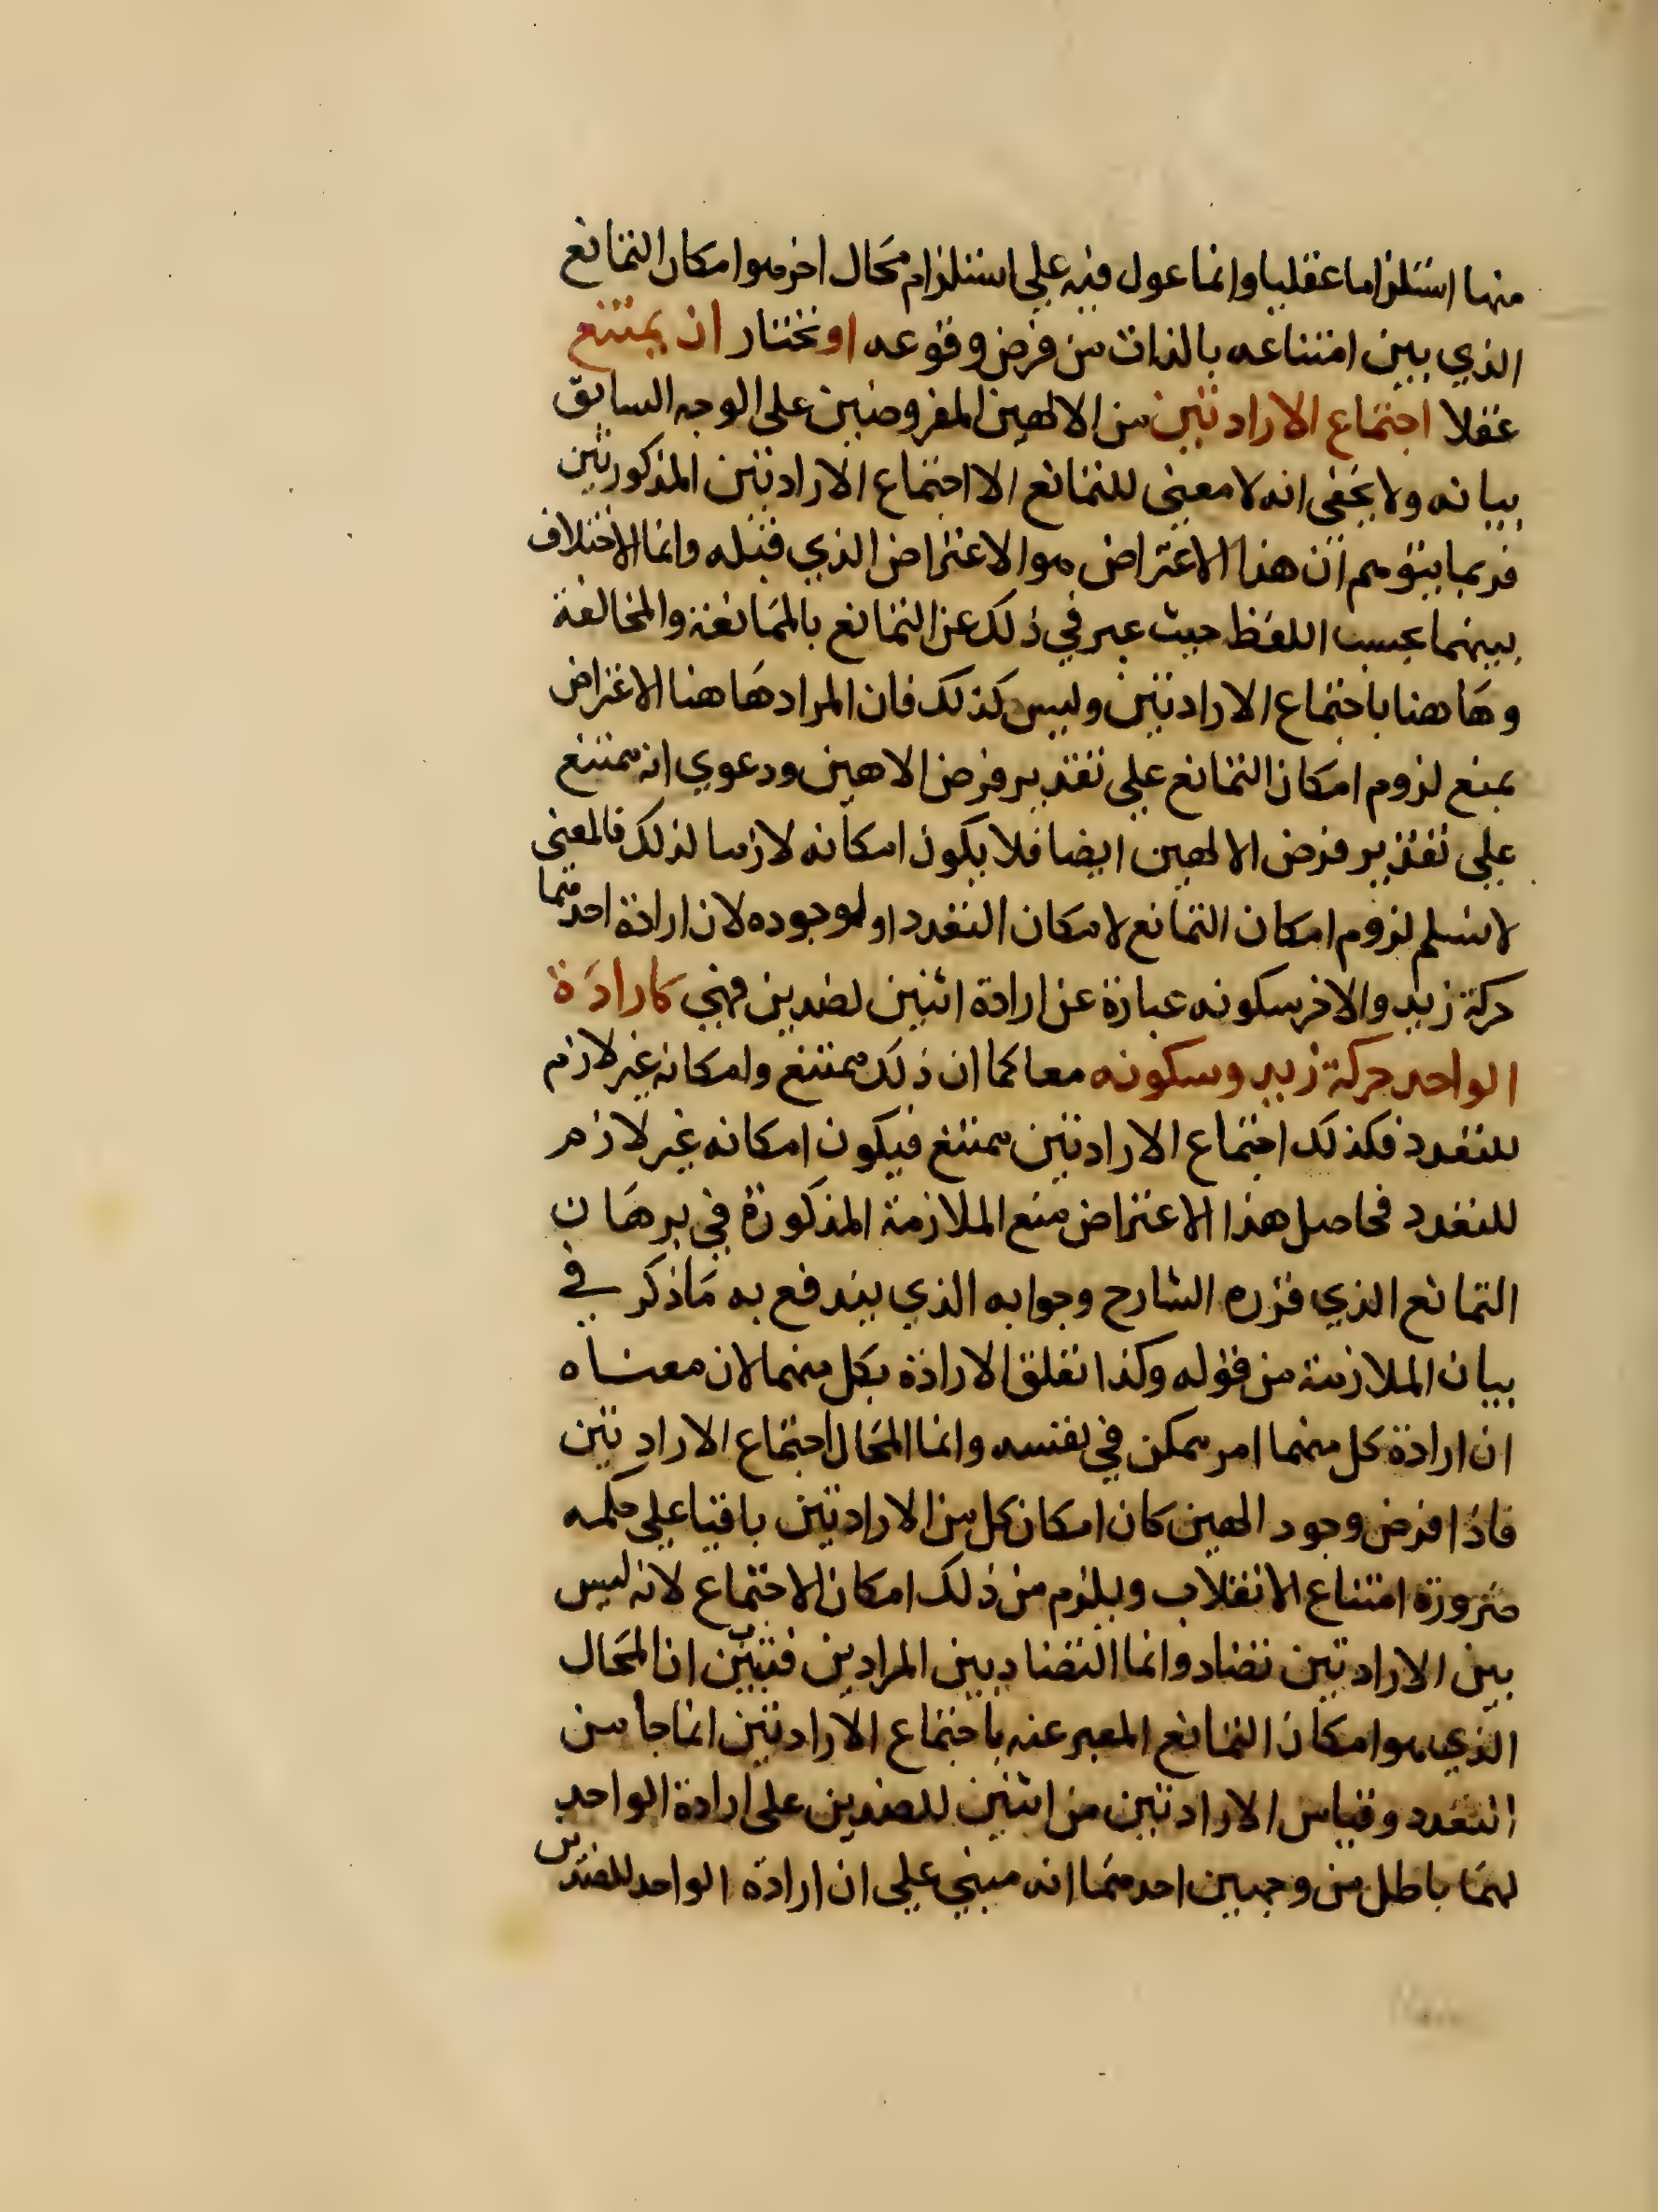 منها استلزاما عقليا وانما عول فيه علي استلزام محال اخر هو امكان التمانع
الذي بين امتناعه بالذات من فرض وقوعه او نختار ان يمتنع
عقلا اجتماع الارادتين من الالهين المفروضين على الوجه السابق
بيانه ولا يخفى انه لا معنى للتمانع الا اجتماع الارادتين المذكورتين
فربما يتوهم ان هذا الاعتراض هو الاعتراض الذي قبله وانما الاختلاف
بينهما بحسب اللفظ حيث عبر في ذلك عن التمانع بالممانعة والمخالفة
وهاهنا باجتماع الارادتين وليس كذلك فان المراد هاهنا الاعتراض
بمنع لزوم امكان التمانع علي تقدير فرض الاهين ودعوي انه ممتنع
علي تقدير فرض الالهين ايضا فلا يكون امكانه لازما لذلك فالمعنى
لا نسلم لزوم امكان التمانع لامكان التعدد او لوجوده لان ارادة احدهما
حركة زيد والاخر سكونه عبارة عن ارادة اثنين لضدين فهي كارادة
الواحد حركة زيد وسكونه معا كما ان ذلك ممتنع وامكانه غير لازم
للتعدد فكذلك اجتماع الارادتين ممتنع فيكون امكانه غير لازم
للتعدد فحاصل هذا الاعتراض منع الملازمة المذكورة في برهان
التمانع الذي قرره الشارح وجوابه الذي يندفع به ما ذكر في
بيان الملازمة من قوله وكذا تعلق الارادة بكل منهما لان معناه
ان ارادة كل منهما امر ممكن في نفسه وانما المحال اجتماع الارادتين
فاذا فرض وجود الهين كان امكان كل من الارادتين باقيا علي حكمه
ضرورة امتناع الانقلاب ويلزم من ذلك امكان الاجتماع لانه ليس
بين الارادتين تضاد وانما التضاد بين المرادين فتبين ان المحال
الذي هو امكان التمانع المعبر عنه باجتماع الارادتين انما جا من
التعدد وقياس الارادتين من اثنين للضدين على ارادة الواحد
لهما باطل من وجهين احدهما انه مبني علي ان ارادة الواحد للضدين